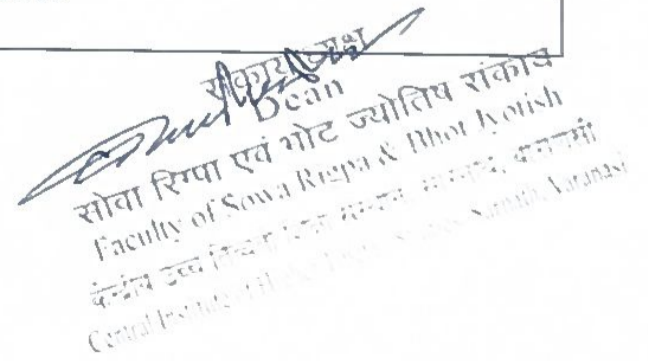 संकायाध्यक्ष
Dean
सोवा रिग्पा एवं भोट ज्योतिष संकाय
Faculty of Sowa Rigpa & Bhot Jyotish
केन्द्रीय उच्च संस्थान, सारनाथ, वाराणसी
Central Institute of Studies, Sarnath, Varanasi